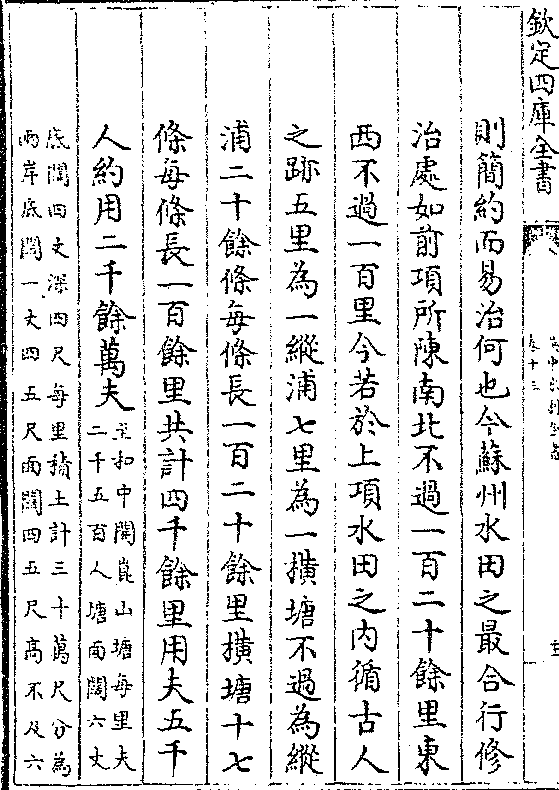 欽定四庫全書
則簡約而易治何也今蘇州水田之最合行修
治處如前項所陳南北不過一百二十餘里東
西不過一百里今若於上項水田之内循古人
之跡五里為一縱浦七里為一撗塘不過為縱
浦二十餘條每條長一百二十餘里撗塘十七
條每條長一百餘里共計四千餘里用夫五千
人約用二千餘萬夫
至扣中開崑山塘每里夫
二千五百人塘面闊六丈
底闊四丈深四尺每里積土計三十萬尺分為
兩岸底闊一丈四五尺面闊四五尺高不及六